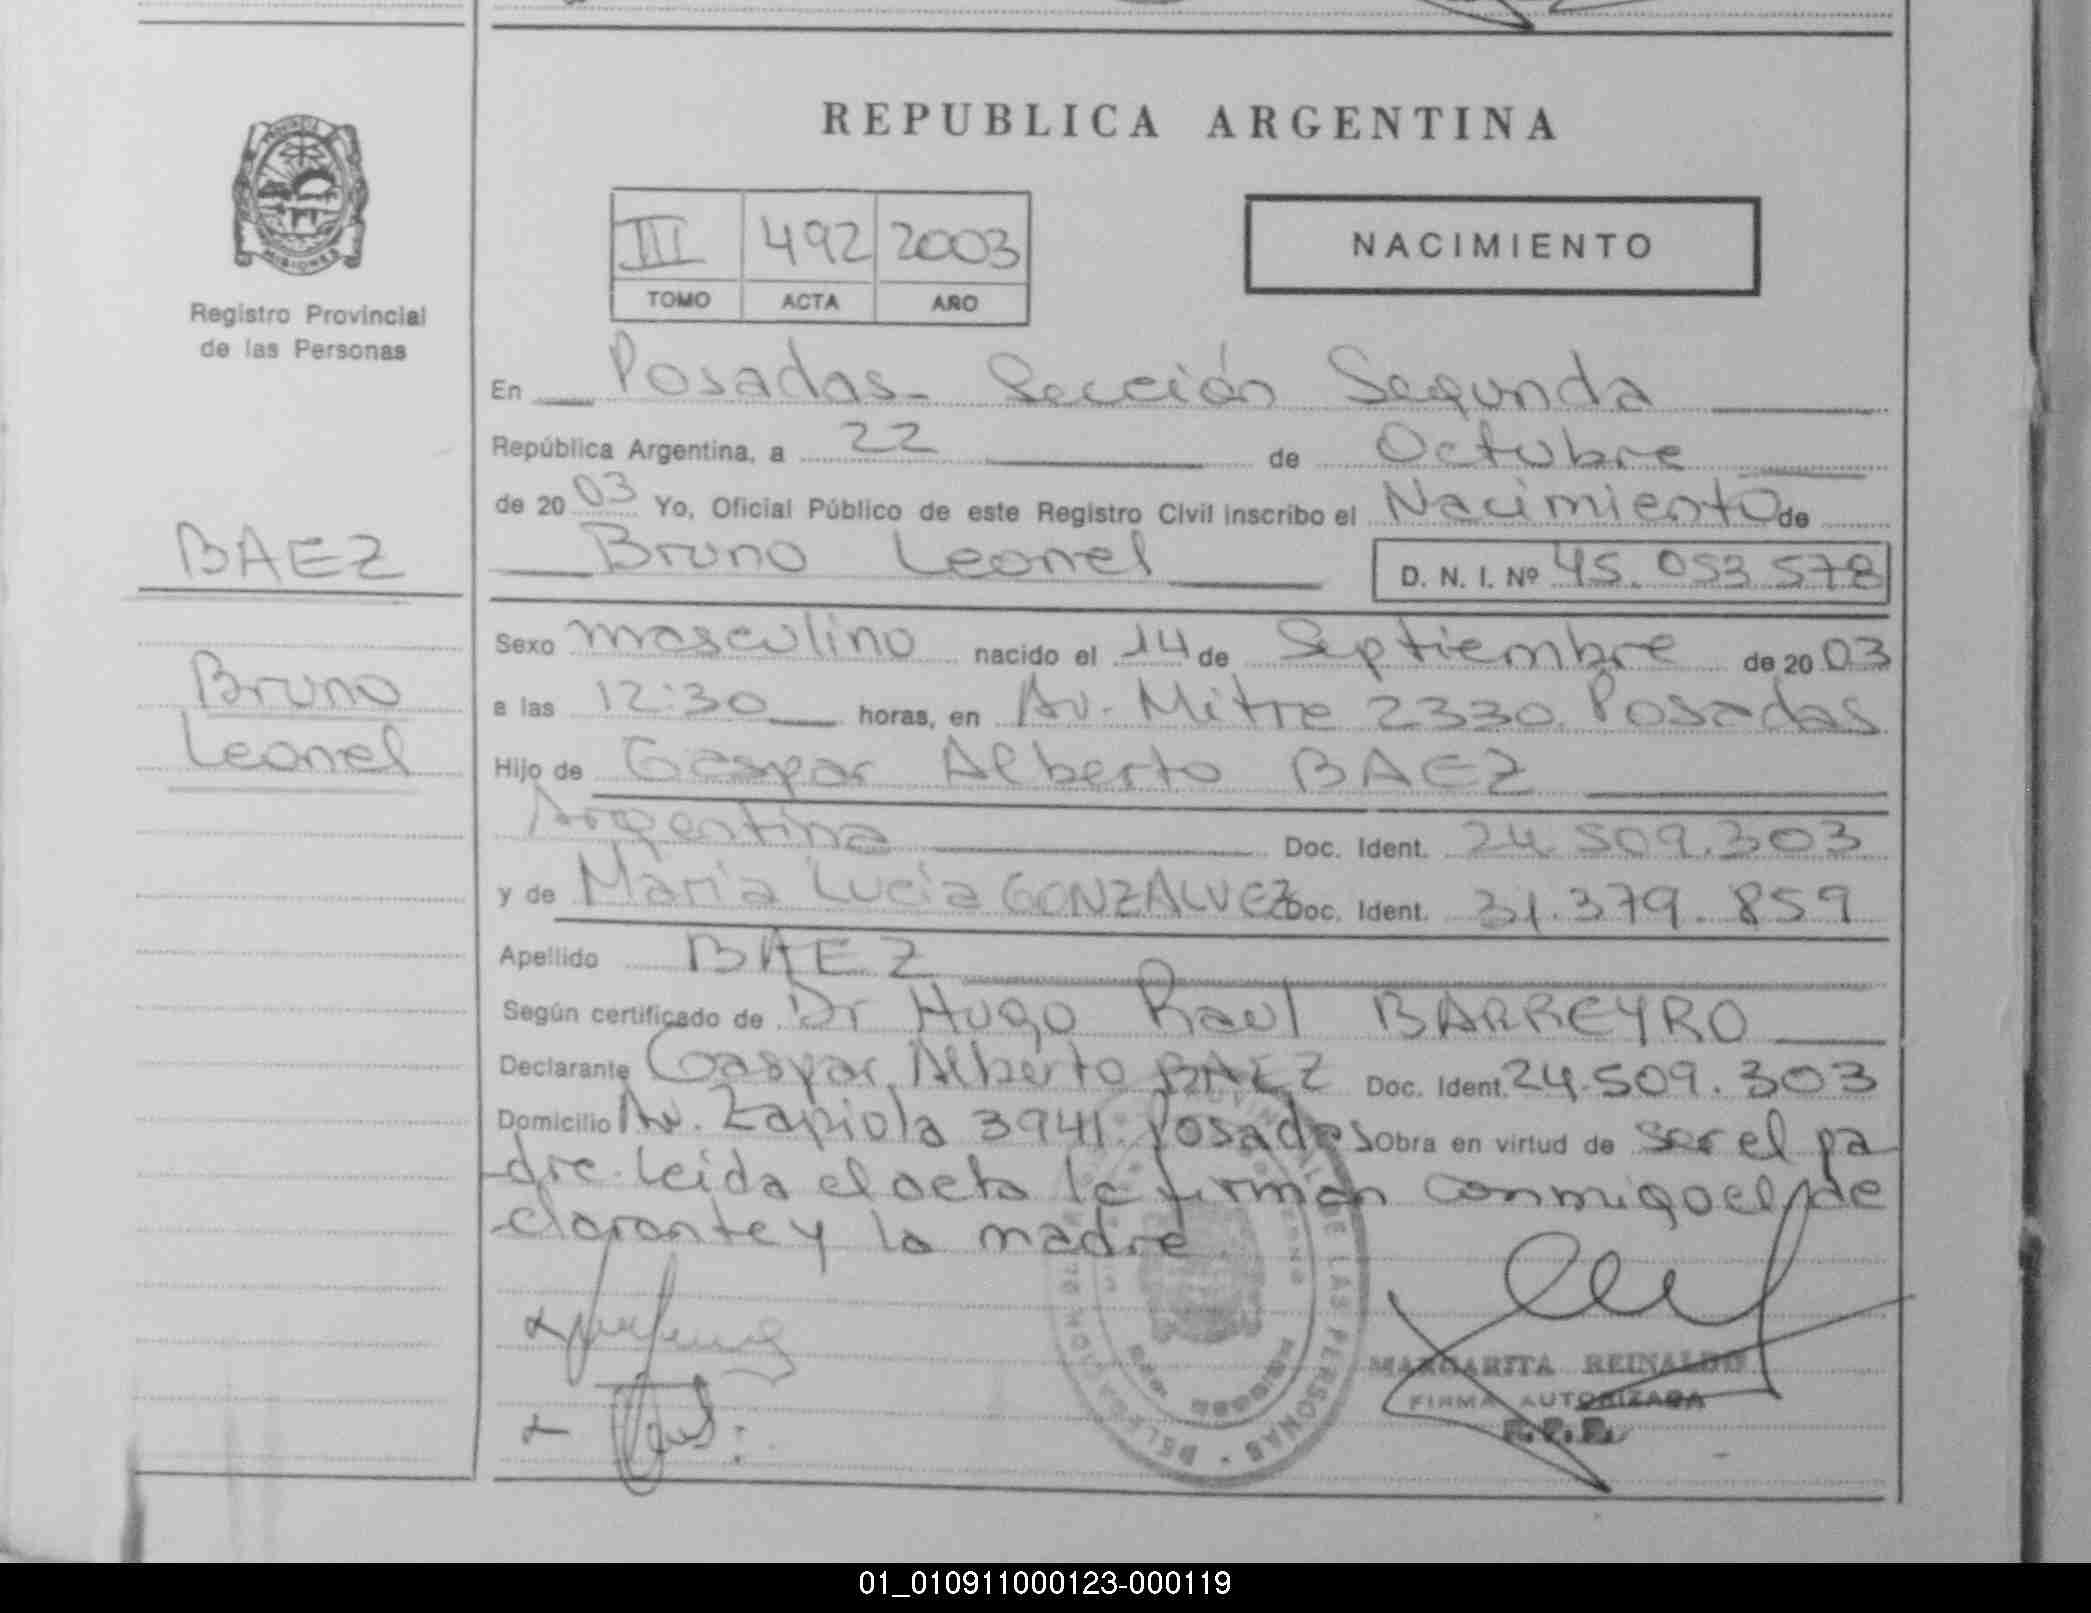 REPUBLICA ARGENTINA
III 492 2003
TOMO ACTA AÑO
NACIMIENTO
PROVINCIA
MISIONES
Registro Provincial
de las Personas
BAEZ
Bruno
Leonel
En Posadas - Sección Segunda
República Argentina, a 22 de Octubre
de 2003 Yo, Oficial Público de este Registro Civil inscribo el Nacimiento de
Bruno Leonel D. N. I. Nº 45.053.578
Sexo masculino nacido el 14 de Septiembre de 2003
a las 12:30 horas, en Av. Mitre 2330. Posadas
Hijo de Gaspar Alberto BAEZ
Argentina Doc. Ident. 24.509.303
y de Maria Lucia GONZALVEZ Doc. Ident. 31.379.859
Apellido BAEZ
Según certificado de Dr Hugo Raul BARREYRO
Declarante Gaspar Alberto BAEZ Doc. Ident. 24.509.303
Domicilio Av. Zapiola 3941. Posadas Obra en virtud de ser el pa
dre. leida el acta la firman conmigo el de
clarante y la madre
DE LAS PERSONAS
MARGARITA REINALDO
FIRMA AUTORIZADA
01_010911000123-000119